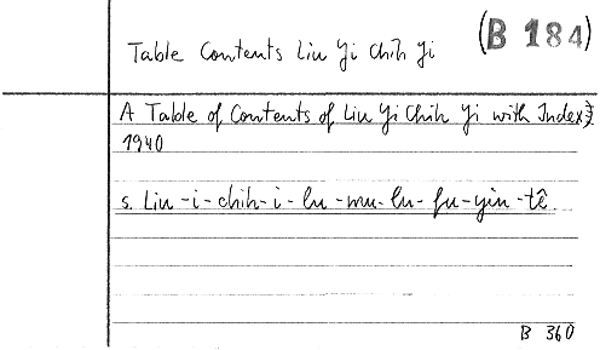 Table Contents Liu Yi Chih Yi (B 184)
A Table of Contents of Liu Yi Chih Yi with Index
1940
s. Liu-i-chih-i-lu-mu-lu-fu-yin-tê
B 360